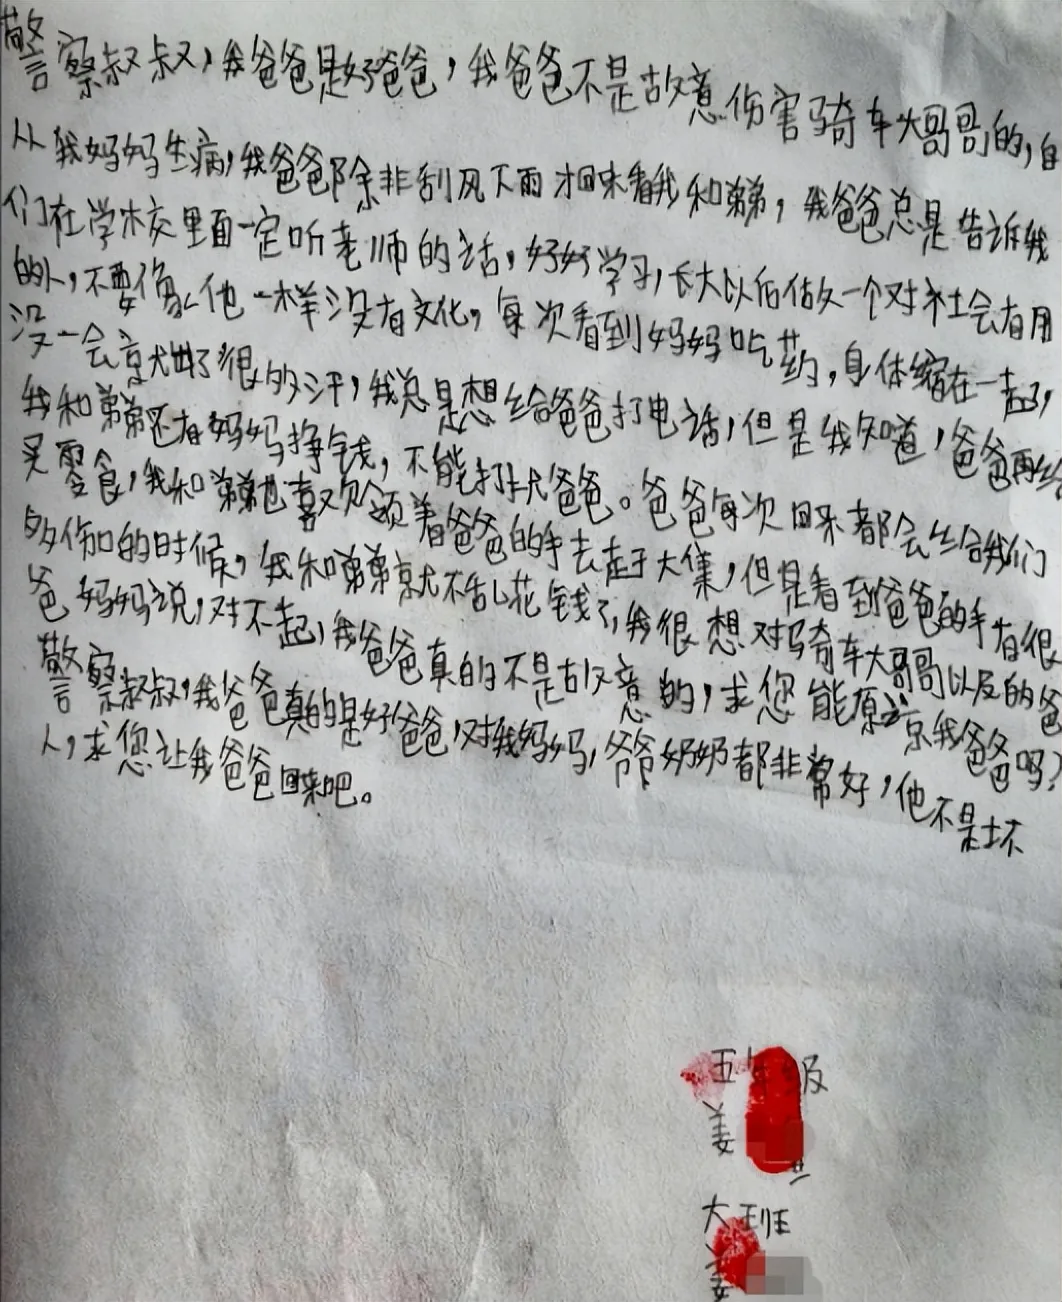 警察叔叔，我爸爸是好爸爸，我爸爸不是故意伤害骑车大哥哥的，自
从我妈妈生病，我爸爸除非刮风下雨才回来看我和弟弟，我爸爸总是告诉我
们在学校里面一定听老师的话，好好学习，长大以后做一个对社会有用
的人，不要像他一样没有文化，每次看到妈妈吃药，身体缩在一起，
没一会就出了很多汗，我总是想给爸爸打电话，但是我知道，爸爸再给
我和弟弟还有妈妈挣钱，不能打扰爸爸。爸爸每次回来都会给我们
买零食，我和弟弟也喜欢领着爸爸的手去赶大集，但是看到爸爸的手有很
多伤口的时候，我和弟弟就不乱花钱了，我很想对骑车大哥哥以及的爸
爸妈妈说，对不起，我爸爸真的不是故意的，求您能原谅我爸爸吗？
警察叔叔，我爸爸真的是好爸爸，对我妈妈，爷爷奶奶都非常好，他不是坏
人，求您让我爸爸回来吧。
五年级
姜
大班
姜